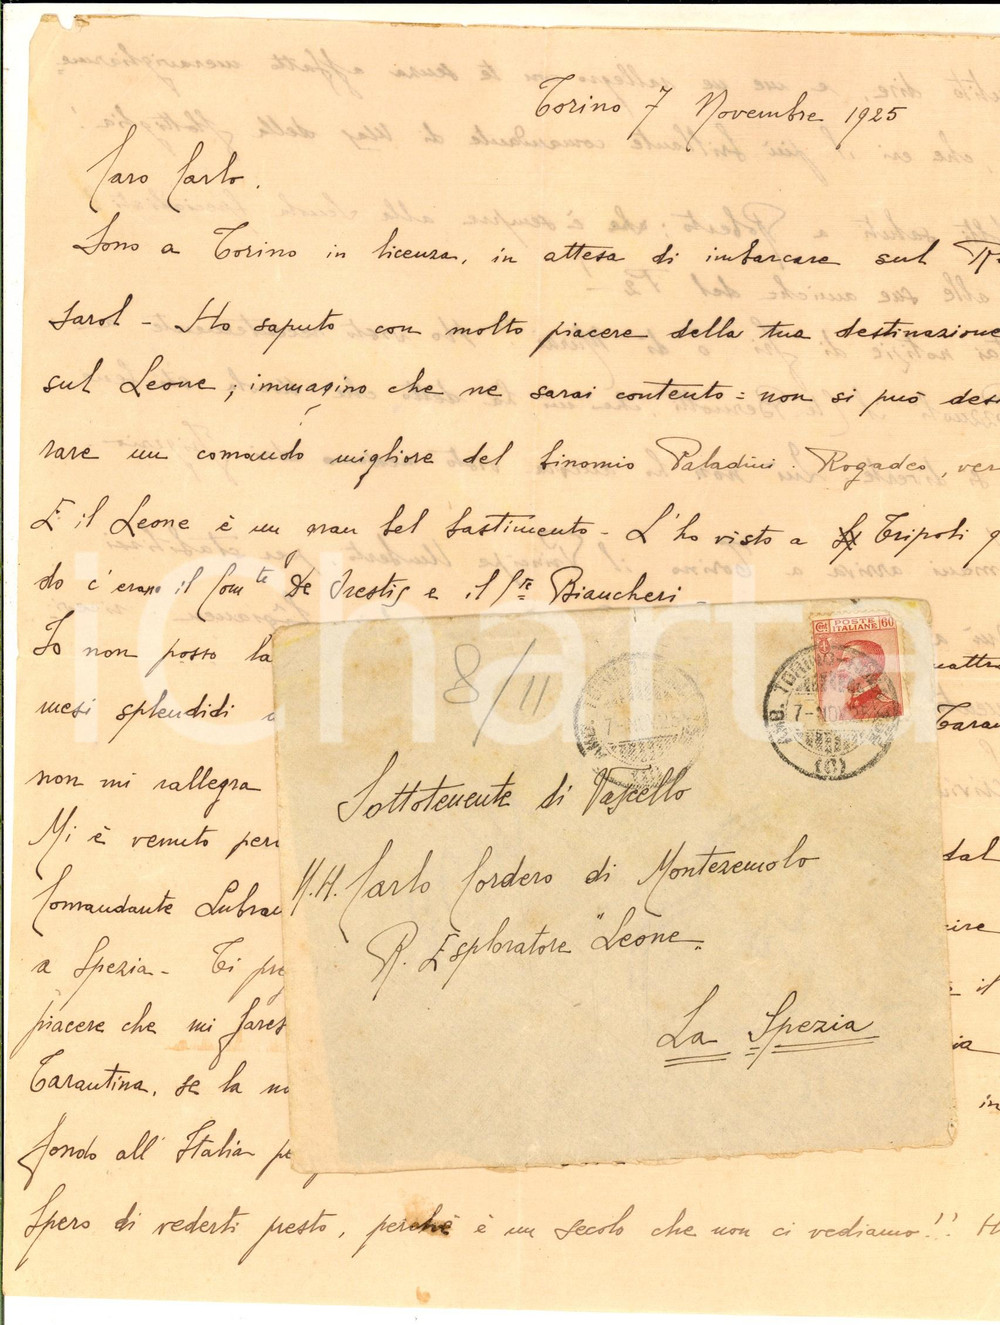 Torino 7 Novembre 1925
Caro Carlo.
Sono a Torino in licenza, in attesa di imbarcare sul
sarol - Ho saputo con molto piacere della tua destinazione
sul Leone; immagino che ne sarai contento = non si può desi
rare un comando migliore del binomio Paladini. Rogadeo, ver
E il Leone è un gran bel bastimento - L'ho visto a Tripoli q
do c'erano il Com te De e il Biancheri -
Io non posso la
mesi splendidi
Taran
non mi rallegra
Mi è venuto per
dal
Comandante
cire
a Spezia - Ti pre
il
piacere che mi fares
ia
Tarantina, se la no
in
fondo all'Italia pe
Spero di vederti presto, perchè è un secolo che non ci vediamo!! H
8/11
POSTE ITALIANE 60
7-NOV
7-NOV
(C)
Sottotenente di Vascello
N.H. Carlo Cordero di Montezemolo
R. Esploratore "Leone"
La Spezia
iCharta